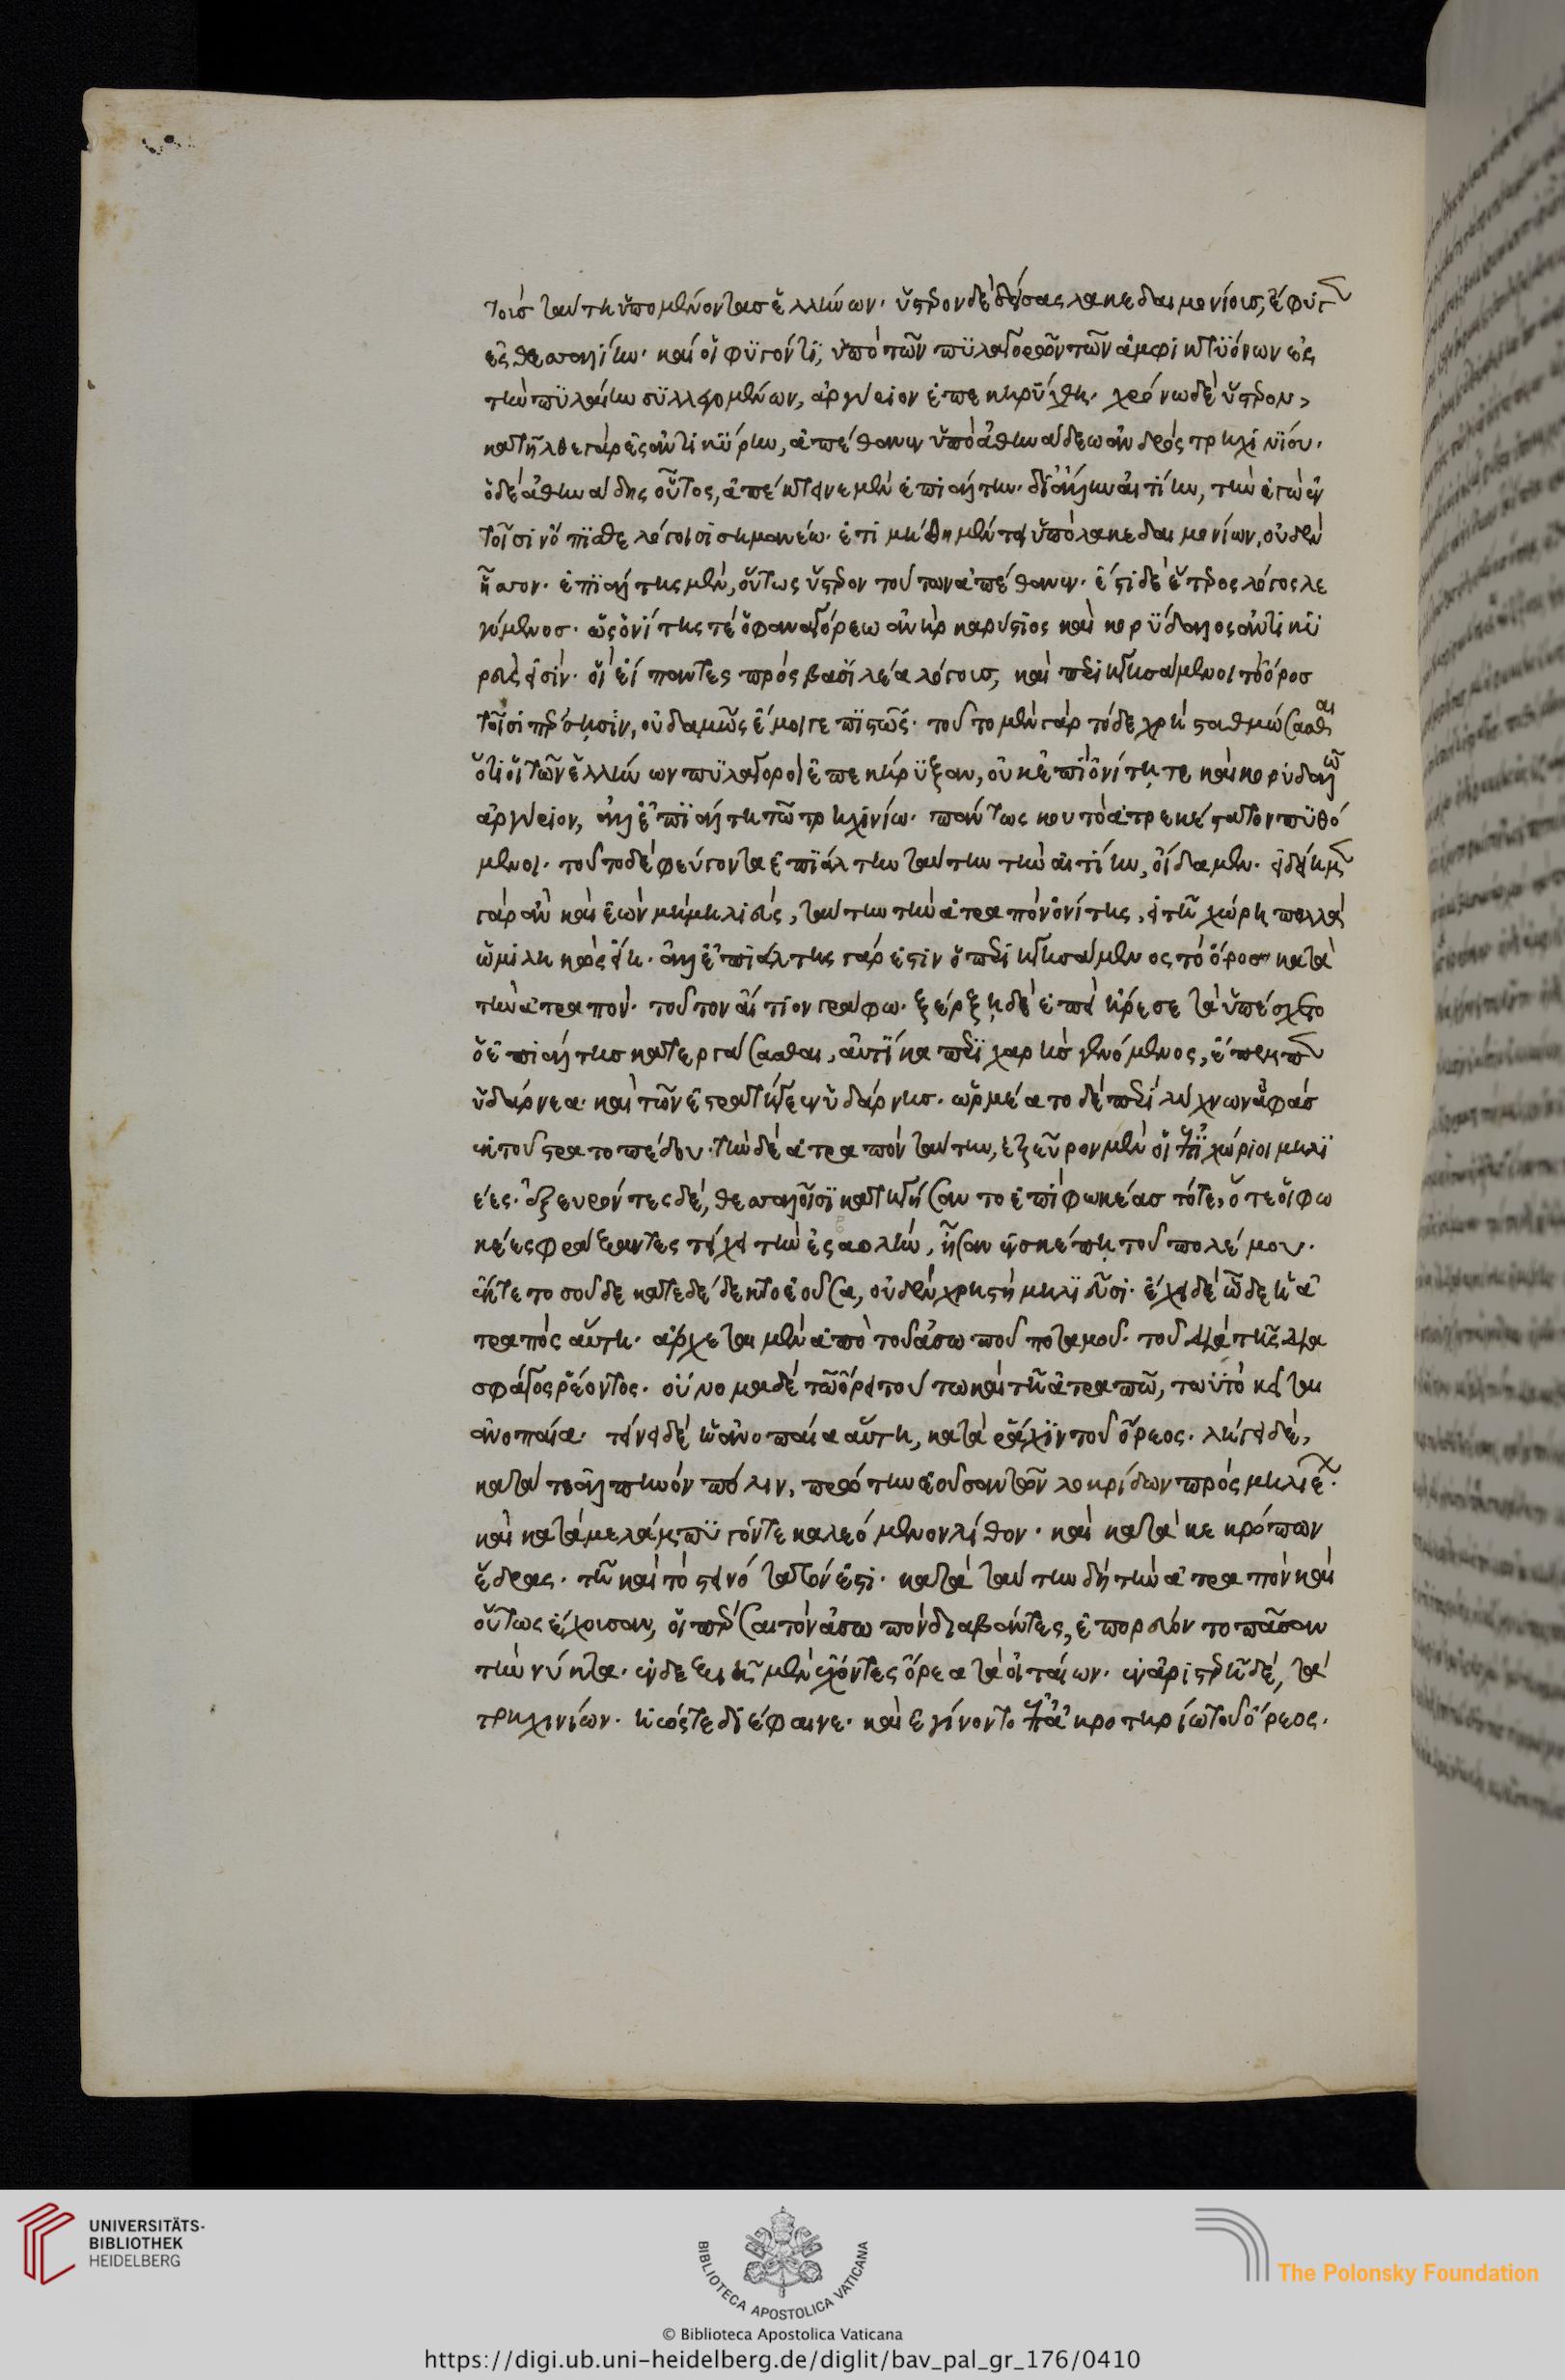 τοὺς ταύτη ὑπομείναντας ἑλλήνων· ὕστερον δὲ δείσας λακεδαιμονίους, ἔφυγεν
ἐς θεσσαλίην· καί οἱ φυγόντι, ὑπὸ τῶν πυλαγόρων τῶν ἀμφικτυόνων ἐς
τὴν πυλαίην συλλεγομένων, ἀργύριον ἐπεκηρύχθη· χρόνω δὲ ὕστερον,
κατῆλθε γὰρ ἐς ἀντικύρην, ἀπέθανεν ὑπὸ ἀθηνάδεω ἀνδρὸς τρηχινίου·
ὁ δὲ ἀθηνάδης οὗτος, ἀπέκτεινε μὲν ἐπιάλτην· δι' ἄλλην αἰτίην, τὴν ἐγὼ ἐν
τοῖσι ὄπισθε λόγοισι σημανέω· ἐτιμήθη μέντοι ὑπὸ λακεδαιμονίων, οὐδὲν
ἧσσον· ἐπιάλτης μὲν, οὕτως ὕστερον τούτων ἀπέθανεν· ἔστι δὲ ἕτερος λόγος λε
γόμενος· ὡς ὀνήτης τε ὁ φαναγόρεω ἀνὴρ καρύστιος καὶ κορυδαλλὸς ἀντικυ
ρεύς εἰσιν· οἱ εἴπαντες πρὸς βασιλέα λόγους, καὶ περιηγησάμενοι τὸ ὄρος
τοῖσι πέρσησιν, οὐδαμῶς ἔμοιγε πιστῶς· τοῦτο μὲν γὰρ τόδε χρὴ σταθμώσασθαι
ὅτι οἱ τῶν ἑλλήνων πυλαγόροι ἐπεκήρυξαν, οὐκ ἐπὶ ὀνήτη τε καὶ κορυδαλλῶ
ἀργύριον, ἀλλ' ἐπὶ ἐπιάλτη τῶ τρηχινίω· πάντως κου τὸ ἀτρεκέστατον πυθό
μενοι· τοῦτο δὲ φεύγοντα ἐπιάλτην ταύτην τὴν αἰτίην, οἴδαμεν· εἰδείη μὲν
γὰρ ἂν καὶ ἐὼν μὴ μηλιεὺς, ταύτην τὴν ἀτραπὸν ὀνήτης, εἰ τῆ χώρη πολλὰ
ὡμιληκὼς εἴη· ἀλλ' ἐπιάλτης γάρ ἐστιν ὁ περιηγησάμενος τὸ ὄρος κατὰ
τὴν ἀτραπόν· τοῦτον αἴτιον γράφω· ξέρξη δὲ ἐπεὶ ἤρεσε τὰ ὑπέσχετο
ὁ ἐπιάλτης κατεργάσασθαι, αὐτίκα περιχαρὴς γενόμενος, ἔπεμπεν
ὑδάρνεα· καὶ τῶν ἐστρατήγεεν ὑδάρνης· ὡρμέατο δὲ περὶ λύχνων ἁφὰς
ἐκ τοῦ στρατοπέδου· τὴν δὲ ἀτραπὸν ταύτην, ἐξεῦρον μὲν οἱ ἐπιχώριοι μηλι
έες· ἐξευρόντες δὲ, θεσσαλοῖσι κατηγήσαντο ἐπὶ φωκέας τότε, ὅτε οἱ φω
κέες φράξαντες τείχει τὴν ἐσβολὴν, ἦσαν ἐν σκέπη τοῦ πολέμου·
ἔκ τε τόσου δὲ κατεδέδεκτο ἐοῦσα, οὐδὲν χρηστὴ μηλιεῦσι· ἔχει δὲ ὧδε ἡ ἀ
τραπὸς αὕτη· ἄρχεται μὲν ἀπὸ τοῦ ἀσωποῦ ποταμοῦ· τοῦ διὰ τῆς δια
σφάγος ῥέοντος· οὔνομα δὲ τῶ ὄρει τούτω καὶ τῆ ἀτραπῶ, τωὐτὸ κεῖται
ἀνόπαια· τείνει δὲ ἡ ἀνόπαια αὕτη, κατὰ ῥάχιν τοῦ ὄρεος· λήγει δὲ,
κατά τε ἀλπηνὸν πόλιν, πρώτην ἐοῦσαν τῶν λοκρίδων πρὸς μηλιέων·
καὶ κατὰ μελάμπυγόν τε καλεόμενον λίθον· καὶ κατὰ κεκρώπων
ἕδρας· τῆ καὶ τὸ στεινότατόν ἐστι· κατὰ ταύτην δὴ τὴν ἀτραπὸν καὶ
οὕτως ἔχουσαν, οἱ πέρσαι τὸν ἀσωπὸν διαβάντες, ἐπορεύοντο πᾶσαν
τὴν νύκτα· ἐν δεξιῆ μὲν ἔχοντες ὄρεα τὰ οἰταίων· ἐν ἀριστερῆ δὲ, τὰ
τρηχινίων· ἠώς τε διέφαινε· καὶ ἐγίνοντο ἐπ' ἀκρωτηρίω τοῦ ὄρεος·
UNIVERSITÄTS-
BIBLIOTHEK
HEIDELBERG
BIBLIOTECA APOSTOLICA VATICANA
The Polonsky Foundation
© Biblioteca Apostolica Vaticana
https://digi.ub.uni-heidelberg.de/diglit/bav_pal_gr_176/0410